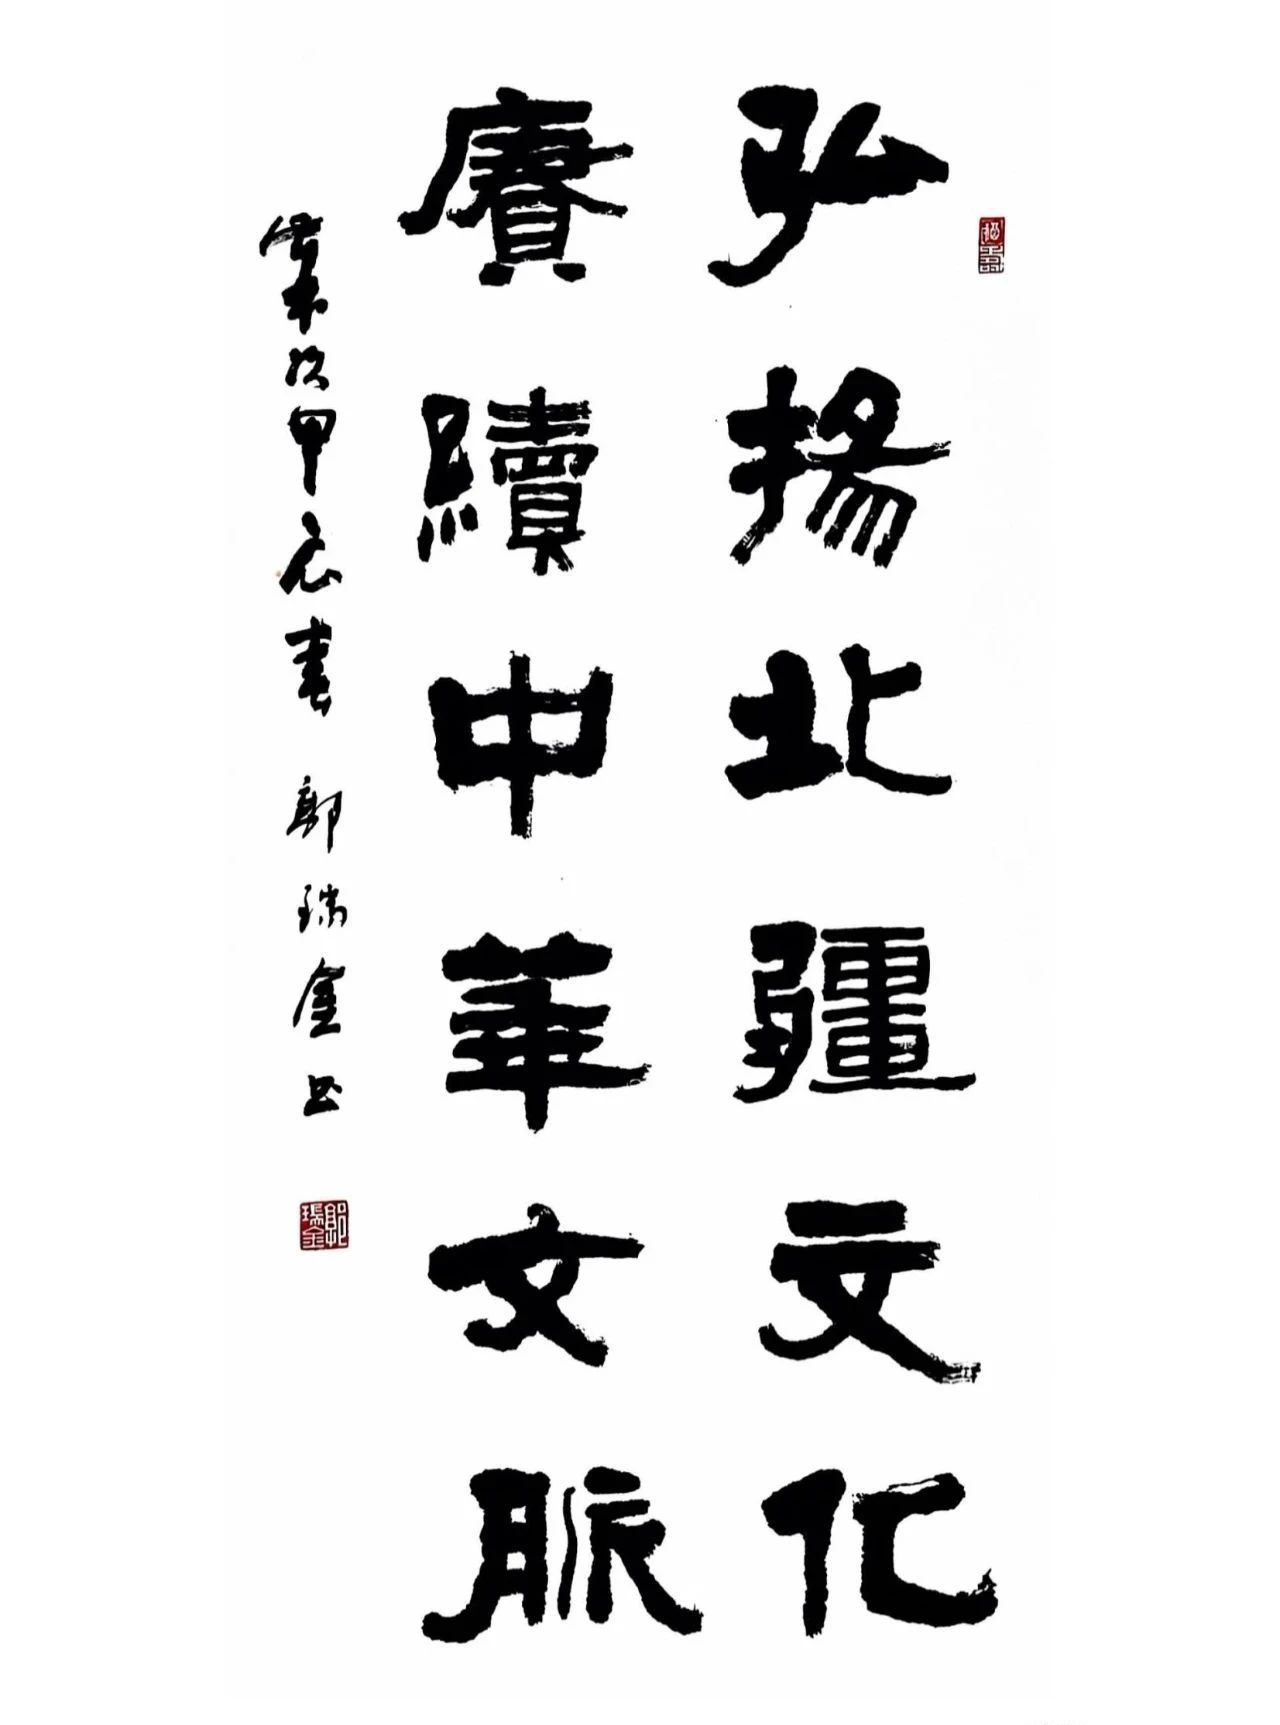 弘揚北疆文化
賡續中華文脈
歲次甲辰春 郭瑞金书
郭瑞金